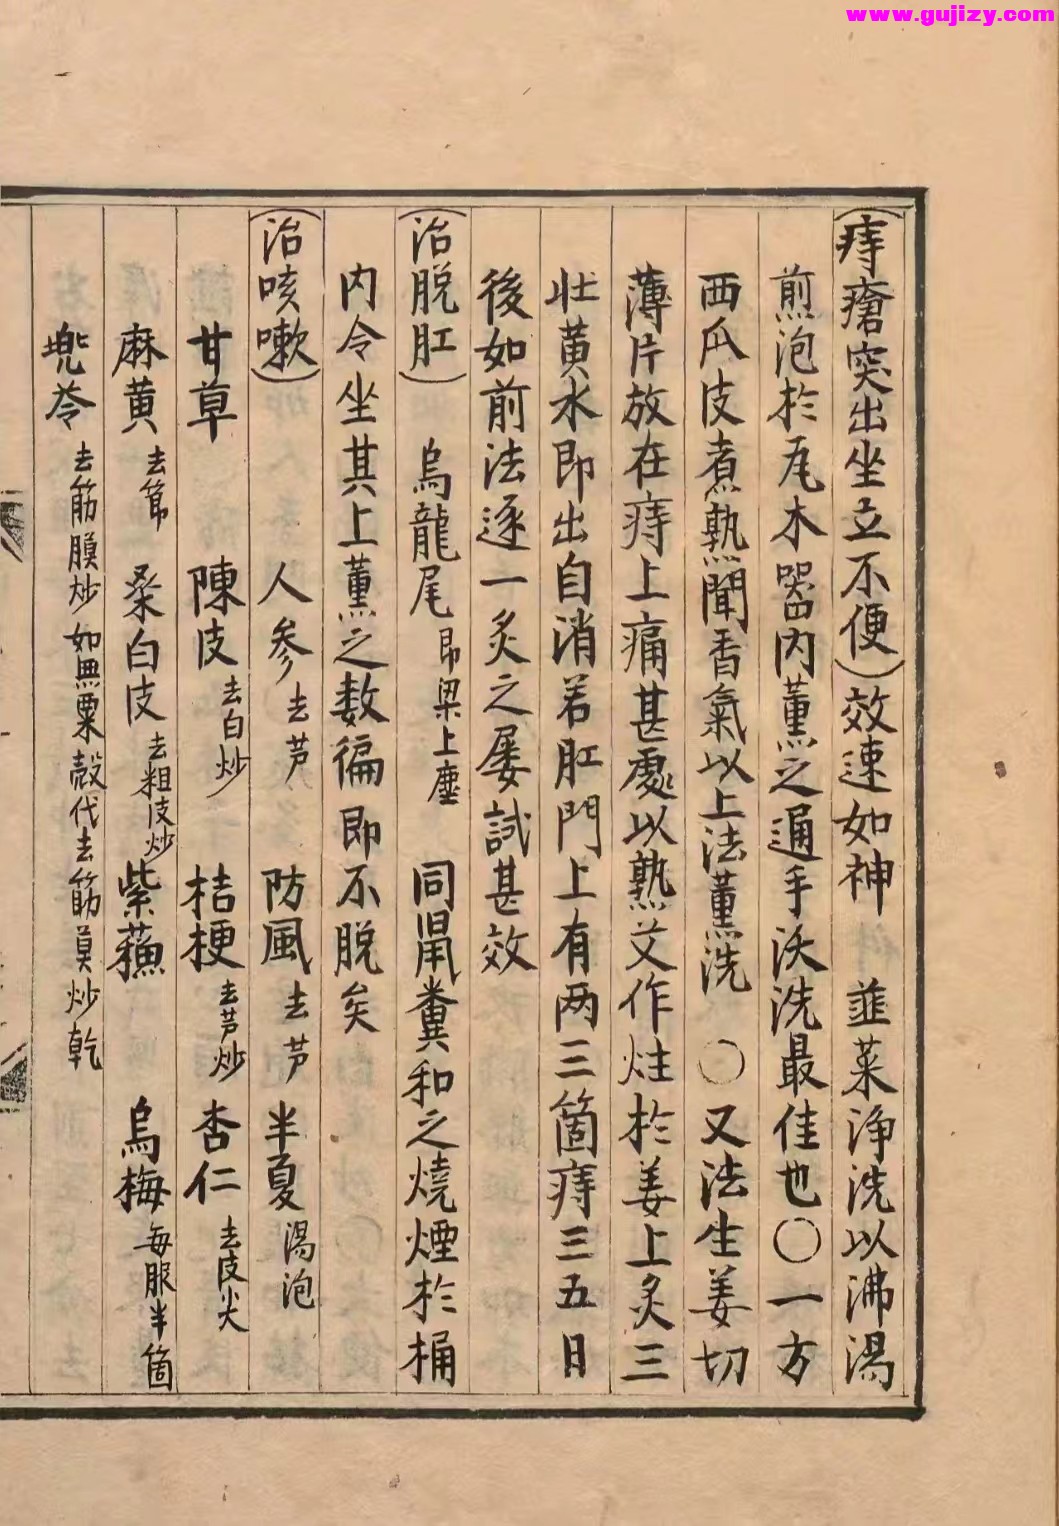 www.gujizy.com
(痔瘡突出坐立不便)效速如神　韮菜浄洗以沸湯
煎泡於瓦木器内薰之通手沃洗最佳也〇一方
西瓜皮煮熟聞香氣以上法薰洗　〇　又法生姜切
薄片放在痔上痛甚處以熟艾作炷於姜上炙三
壯黄水即出自消若肛門上有两三箇痔三五日
後如前法逐一炙之屡試甚效
(治脱肛)　烏龍尾 昂梁上塵　同鼡糞和之燒煙於桶
内令坐其上薰之数徧即不脱矣
(治咳嗽)　人参 去芦　防風 去芦　半夏 湯泡
甘草　陳皮 去白炒　桔梗 去芦炒　杏仁 去皮尖
麻黄 去節　桑白皮 去粗皮炒　紫蘓　烏梅 每服半箇
兜苓 去筋膜炒如無粟殼代去筋莫炒乾